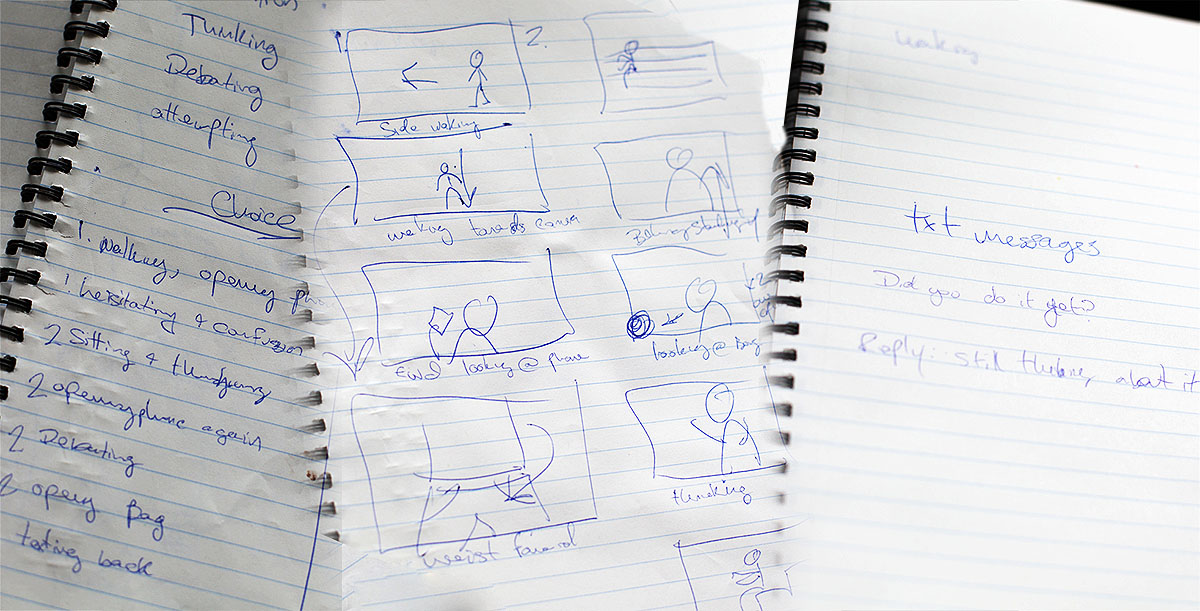 Thinking
Debating
attempting
Choice
1. walking, opening
1. heisitating & confusion
2 Sitting & thinking
2 opening phone again
2 Debating
2 opeing Bag
texting back
1.
2.
Side waking
waking towards
Fwd looking @ phone
looking @ Bag
x2
thinking
waist
txt messages
Did you do it yet?
Reply: still thinking about it